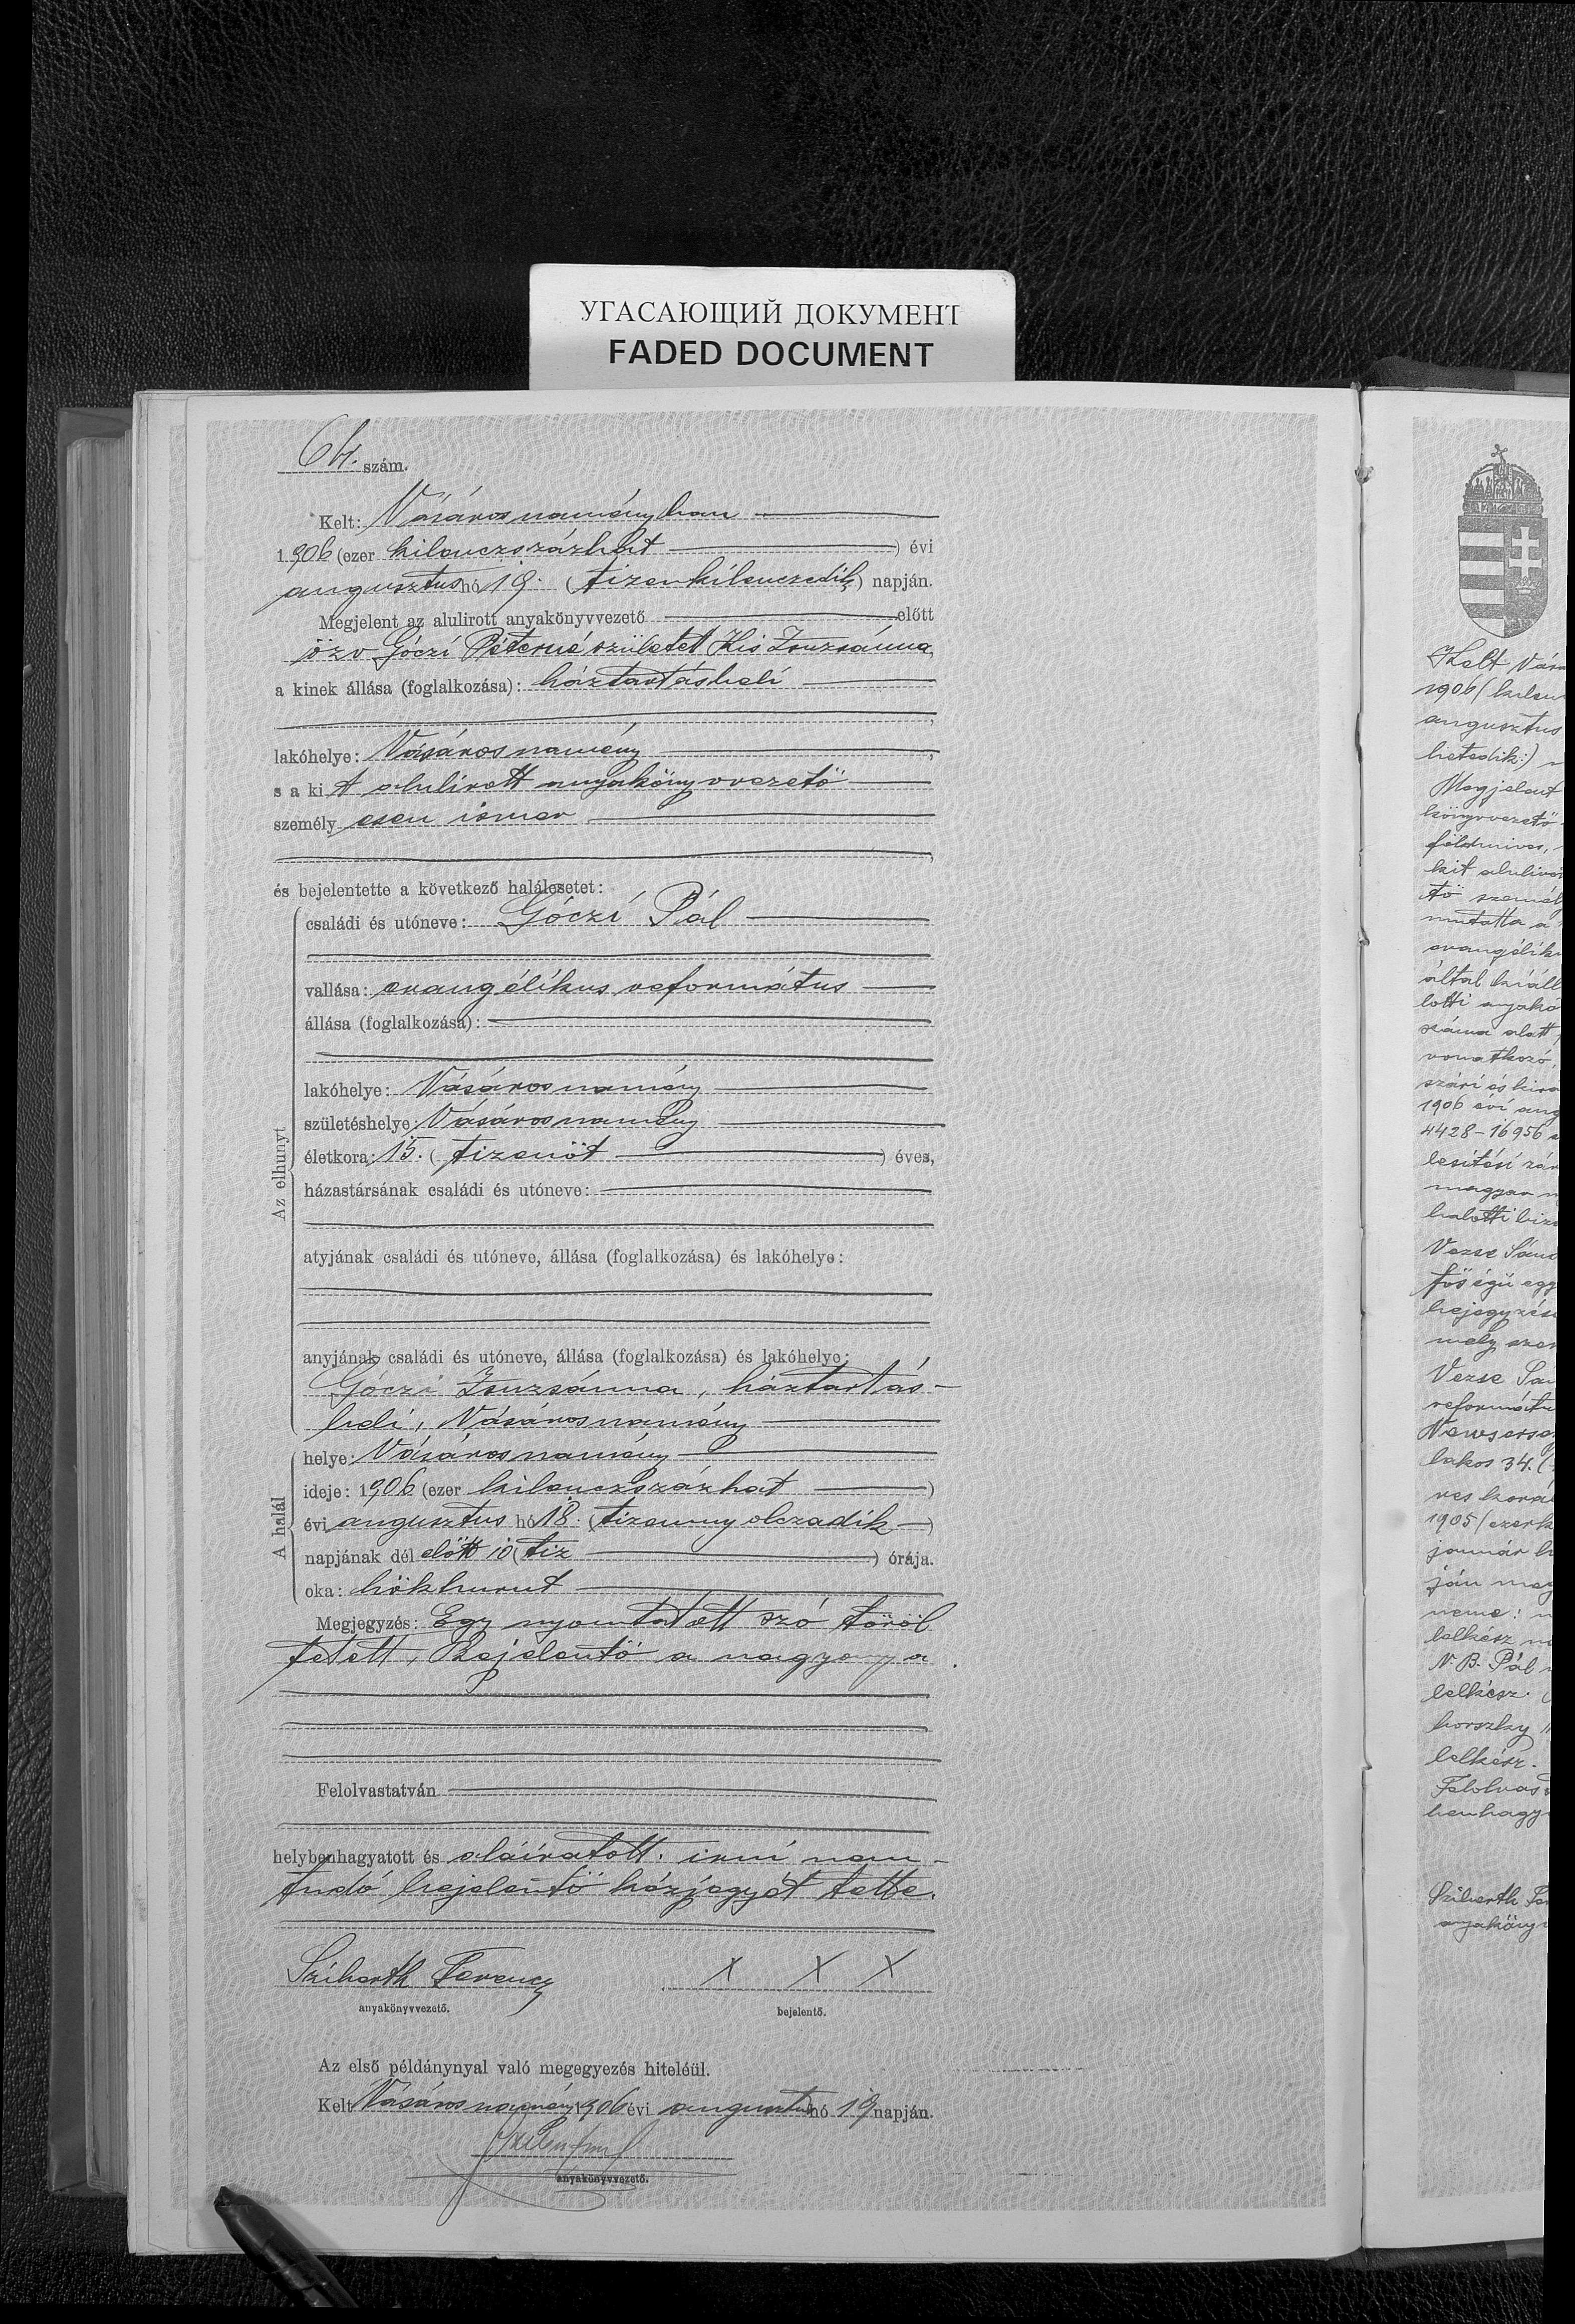 УГАСАЮЩИЙ ДОКУМЕНТ
FADED DOCUMENT
64. szám.
Kelt: Vásárosnaményban
1906 (ezer kilenczszázhat) évi
augusztus hó 19. (tizenkilenczedik) napján.
Megjelent az alulirott anyakönyvvezető előtt
özv Góczi Péterné született Kis Zsuzsánna,
a kinek állása (foglalkozása): háztartásbeli
lakóhelye: Vásárosnamény,
s a ki t alulirott anyakönyvvezető
személy esen ismer
és bejelentette a következő halálesetet:
Az elhunyt
családi és utóneve: Góczi Pál
vallása: evangélikus református
állása (foglalkozása):
lakóhelye: Vásárosnamény
születéshelye: Vásárosnamény
életkora: 15. (tizenöt) éves,
házastársának családi és utóneve:
atyjának családi és utóneve, állása (foglalkozása) és lakóhelye:
anyjának családi és utóneve, állása (foglalkozása) és lakóhelye:
Góczi Zsuzsánna, háztartás-
beli, Vásárosnamény
A halál
helye: Vásárosnamény
ideje: 1906 (ezer kilenczszázhat)
évi augusztus hó 18. (tizennyolczadik)
napjának dél előtt 10 (tiz) órája.
oka: hökhurut
Megjegyzés: Egy nyomtatott szó töröl
tetett, Bejelentő a nagyanya.
Felolvastatván
helybenhagyatott és aláíratott. irni nem-
tudó bejelentő kézjegyét tette.
Sziberth Ferencz
X X X
anyakönyvvezető.
bejelentő.
Az első példánynyal való megegyezés hiteléül.
Kelt Vásárosnamény 1906 évi augusztus hó 19 napján.
anyakönyvvezető.
Kelt Vásá
1906 (kilen
augusztus
hetedik:)
Megjelent
könyvvezető
földmives,
kit aluliro
tő személ
mutatta a
evangélik
által kiáll
lotti anyakö
száma alatt
vonatkozó
1906 évi aug
4428-16956
lesitési zár
magyar
halotti biz
Vezse Sánd
bejegyzés
mely szer
Vezse Sán
reformátu
lakos 34.
ves korá
1905 (ezerk
január h
ján meg
neme:
lelkész
N. B. Pál
lelkész.
horszky
lelkész.
Felolvas
benhagy
Sziberth Fer
anyaköny